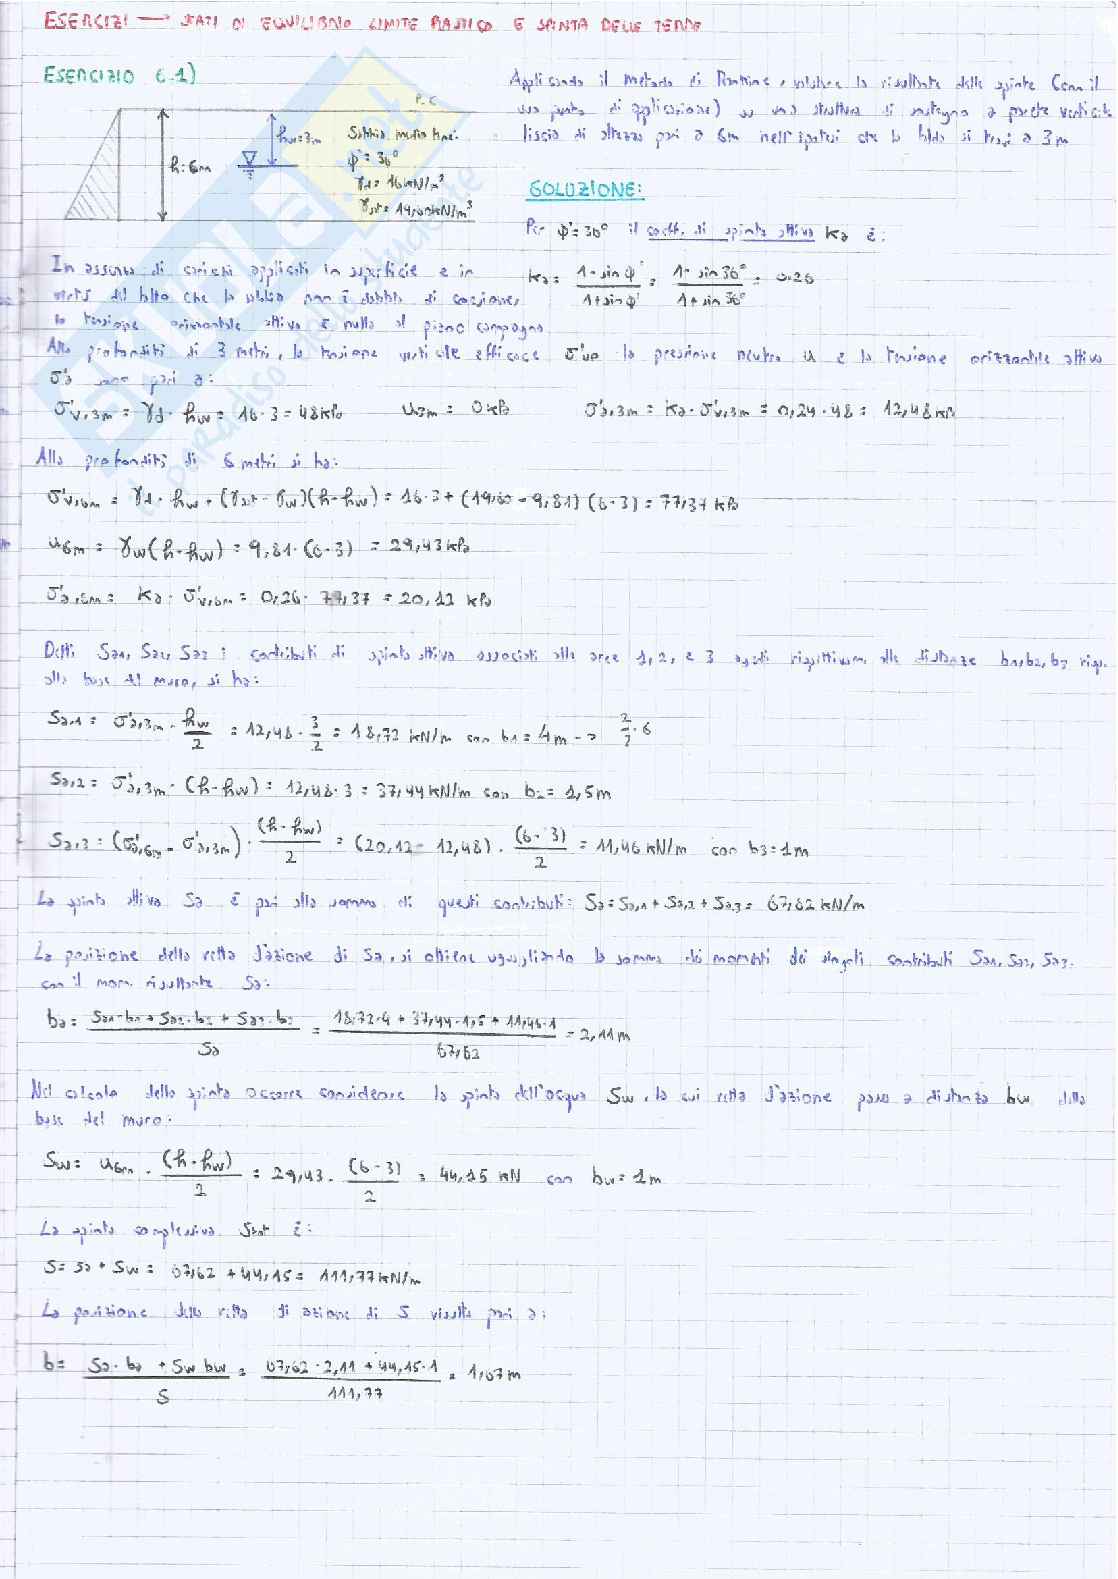 ESERCIZI → STATI DI EQUILIBRIO LIMITE PLASTICO E SPINTA DELLE TERRE
ESERCIZIO 6.1)
Applicando il metodo di Rankine, valutare la risultante delle spinte (con il
suo punto di applicazione) su una struttura di sostegno a parete verticale
liscia di altezza pari a 6m nell'ipotesi che la falda si trovi a 3m
P.C
h=6m
hw=3m
Sabbia medio fine:
φ'=36°
γd=16kN/m³
γsat=19,60kN/m³
SOLUZIONE:
Per φ'=36° il coeff. di spinta attiva Ka è:
Ka = 1-sin φ' / 1+sin φ' = 1-sin 36° / 1+sin 36° = 0.26
In assenza di carichi applicati in superficie e in
virtù del fatto che la sabbia non è dotata di coesione,
la tensione orizzontale attiva è nulla al piano campagna.
Alla profondità di 3 metri, la tensione verticale efficace σ'vo la pressione neutra u e la tensione orizzontale attiva
σ'a sono pari a:
σ'v,3m = γd · hw = 16·3 = 48kPa u3m = 0kPa σ'a,3m = Ka · σ'v,3m = 0,24·48 = 12,48kPa
Alla profondità di 6 metri si ha:
σ'v,6m = γd · hw + (γsat - γw)(h-hw) = 16·3+(19,60-9,81)(6-3) = 77,37 kPa
u6m = γw(h-hw) = 9,81·(6-3) = 29,43kPa
σ'a,6m = Ka · σ'v,6m = 0,26 · 77,37 = 20,12 kPa
Detti Sa1, Sa2, Sa3 i contributi di spinta attiva associati alle aree 1, 2, e 3 agenti rispettivam. alle distanze b1, b2, b3 risp.
alla base del muro, si ha:
Sa,1 = σ'a,3m · hw/2 = 12,48 · 3/2 = 18,72 kN/m con b1 = 4m → 2/3 · 6
Sa,2 = σ'a,3m · (h-hw) = 12,48·3 = 37,44kN/m con b2 = 1,5m
Sa,3 = (σ'a,6m - σ'a,3m) · (h-hw)/2 = (20,12 - 12,48) · (6-3)/2 = 11,46 kN/m con b3=1m
La spinta attiva Sa è pari alla somma di questi contributi: Sa = Sa,1 + Sa,2 + Sa,3 = 67,62 kN/m
La posizione della retta d'azione di Sa, si ottiene uguagliando la somma dei momenti dei singoli contributi Sa1, Sa2, Sa3.
con il mom. risultante Sa:
ba = Sa1·b1 + Sa2·b2 + Sa3·b3 / Sa = 18,72·4 + 37,44·1,5 + 11,46·1 / 67,62 = 2,11m
Nel calcolo della spinta occorre considerare la spinta dell'acqua Sw, la cui retta d'azione passa a distanza bw dalla
base del muro:
Sw = u6m · (h-hw)/2 = 29,43 · (6-3)/2 = 44,15 kN con bw = 1m
La spinta complessiva Stot è:
S = Sa + Sw = 67,62 + 44,15 = 111,77kN/m
La posizione della retta di azione di S risulta pari a:
b = Sa·ba + Sw bw / S = 67,62 · 2,11 + 44,15·1 / 111,77 = 1,67m